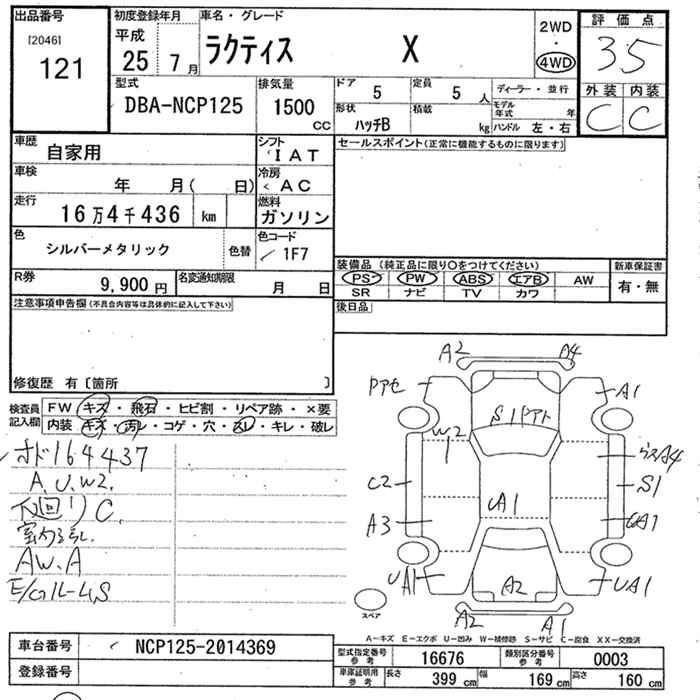 出品番号
[2046]
121
初度登録年月
平成
25 7月
車名・グレード
ラクティス X
2WD
・
4WD
評価点
3.5
外装 内装
C C
型式
DBA-NCP125
排気量
1500
CC
ドア
5
定員
5 人
形状
ハッチB
積載
kg
ディーラー・並行
モデル年式 年
ハンドル 左・右
車歴
自家用
シフト
IAT
車検
年 月( 日)
冷房
AC
走行
16万4千436 km
燃料
ガソリン
色
シルバーメタリック
色替
色コード
1F7
R券
9,900円
名変通知期限
月 日
セールスポイント(正常に機能するものに限ります)
装備品(純正品に限り○をつけてください)
PS PW ABS エアB AW
SR ナビ TV カワ
新車保証書
有・無
後日品
注意事項申告欄(不具合内容等は具体的に記入して下さい)
修復歴 有〔箇所 〕
検査員記入欄
FW キズ・飛石・ヒビ割・リペア跡・×要
内装 キズ・汚レ・コゲ・穴・スレ・キレ・破レ
オド164437
A.U.W2.
下回りC.
AW.A
A2 A4
A1
W2
C2
S1
A3
A1
UA1
UA1
A2
A2 A1
スペア
A-キズ E-エクボ U-凹み W-補修跡 S-サビ C-腐食 XX-交換済
車台番号
NCP125-2014369
登録番号
型式指定番号参考
16676
類別区分番号参考
0003
車庫証明用参考
長さ 399 cm
幅 169 cm
高さ 160 cm